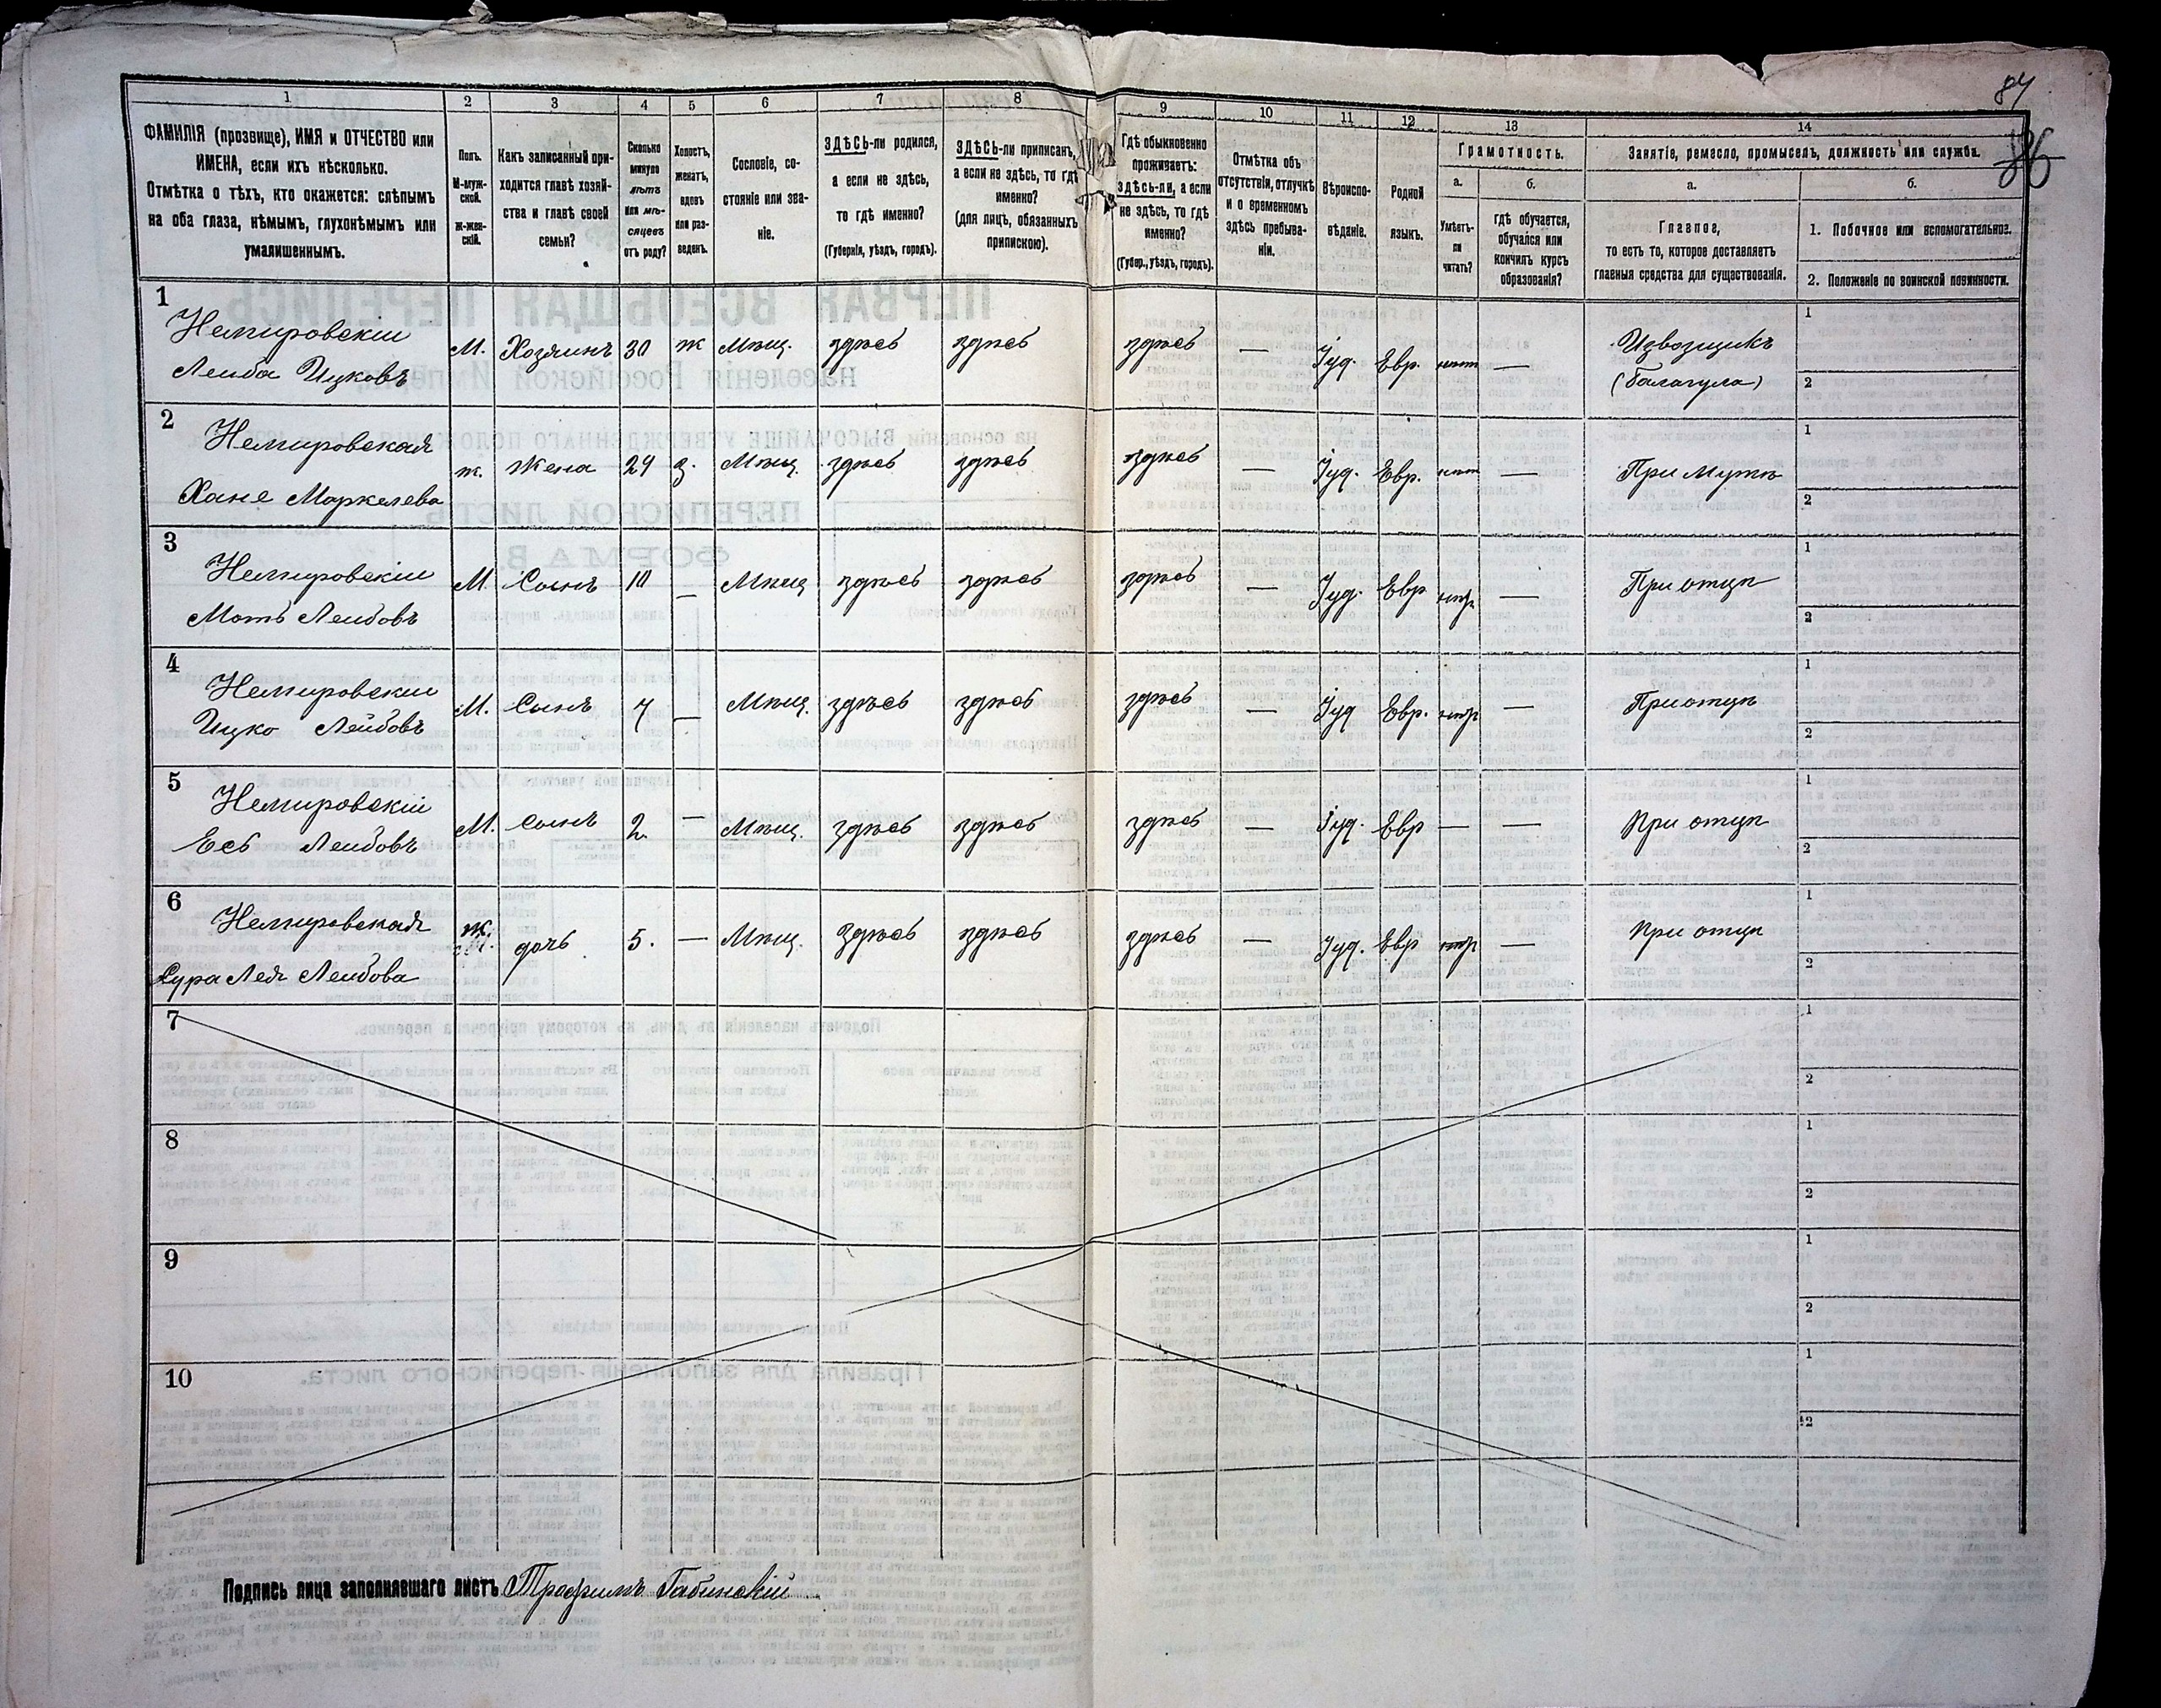 84
86
1 2 3 4 5 6 7 8 9 10 11 12 13 14
ФАМИЛІЯ (прозвище), ИМЯ и ОТЧЕСТВО или
ИМЕНА, если ихъ нѣсколько.
Отмѣтка о тѣхъ, кто окажется: слѣпымъ
на оба глаза, нѣмымъ, глухонѣмымъ или
умалишеннымъ.
Полъ.
М-муж-
ской.
Ж-жен-
скій.
Какъ записанный при-
ходится главѣ хозяй-
ства и главѣ своей
семьи?
Сколько
минуло
лѣтъ
или мѣ-
сяцевъ
отъ роду?
Холостъ,
женатъ,
вдовъ
или раз-
веденъ.
Сословіе, со-
стояніе или зва-
ніе.
ЗДѢСЬ-ли родился,
а если не здѣсь,
то гдѣ именно?
(Губернія, уѣздъ, городъ).
ЗДѢСЬ-ли приписанъ,
а если не здѣсь, то гдѣ
именно?
(для лицъ, обязанныхъ
припискою).
Гдѣ обыкновенно
проживаетъ:
ЗДѢСЬ-ЛИ, а если
не здѣсь, то гдѣ
именно?
(Губер., уѣздъ, городъ).
Отмѣтка объ
отсутствіи, отлучкѣ
и о временномъ
здѣсь пребыва-
ніи.
Вѣроиспо-
вѣданіе.
Родной
языкъ.
Грамотность.
а.
Умѣетъ-
ли
читать?
б.
гдѣ обучается,
обучался или
кончилъ курсъ
образованія?
Занятіе, ремесло, промыселъ, должность или служба.
а.
Главное,
то есть то, которое доставляетъ
главныя средства для существованія.
б.
1. Побочное или вспомогательное.
2. Положеніе по воинской повинности.
1 Немировскіи М. Хозяинъ 30 ж Мѣщ. здѣсь здѣсь здѣсь — Іуд. Евр. нѣт — Извозщикъ 1
Леиба Ицковъ (балагула) 2
2 Немировская ж. Жена 24 з. Мѣщ. здѣсь здѣсь здѣсь — Іуд. Евр. нѣт — При мужѣ 1
Хане Маркелева 2
3 Немировскіи М. Сынъ 10 — Мѣщ здѣсь здѣсь здѣсь — Іуд. Евр — При отцѣ 1
Моть Леибовъ 2
4 Немировскіи М. Сынъ 7 — Мѣщ. здѣсь здѣсь здѣсь — Іуд Евр. — При отцѣ 1
Ицко Лейбовъ 2
5 Немировскій М. Сынъ 2. — Мѣщ. здѣсь здѣсь здѣсь — Іуд. Евр — — При отцѣ 1
Есь Леибовъ 2
6 Немировская ж. дочь 5. — Мѣщ. здѣсь здѣсь здѣсь — Іуд. Евр — При отцѣ 1
Сура Лея Леибова 2
7 1
2
8 1
2
9 1
2
10 1
2
Подпись лица заполнявшаго листъ Трофимъ Габинскій